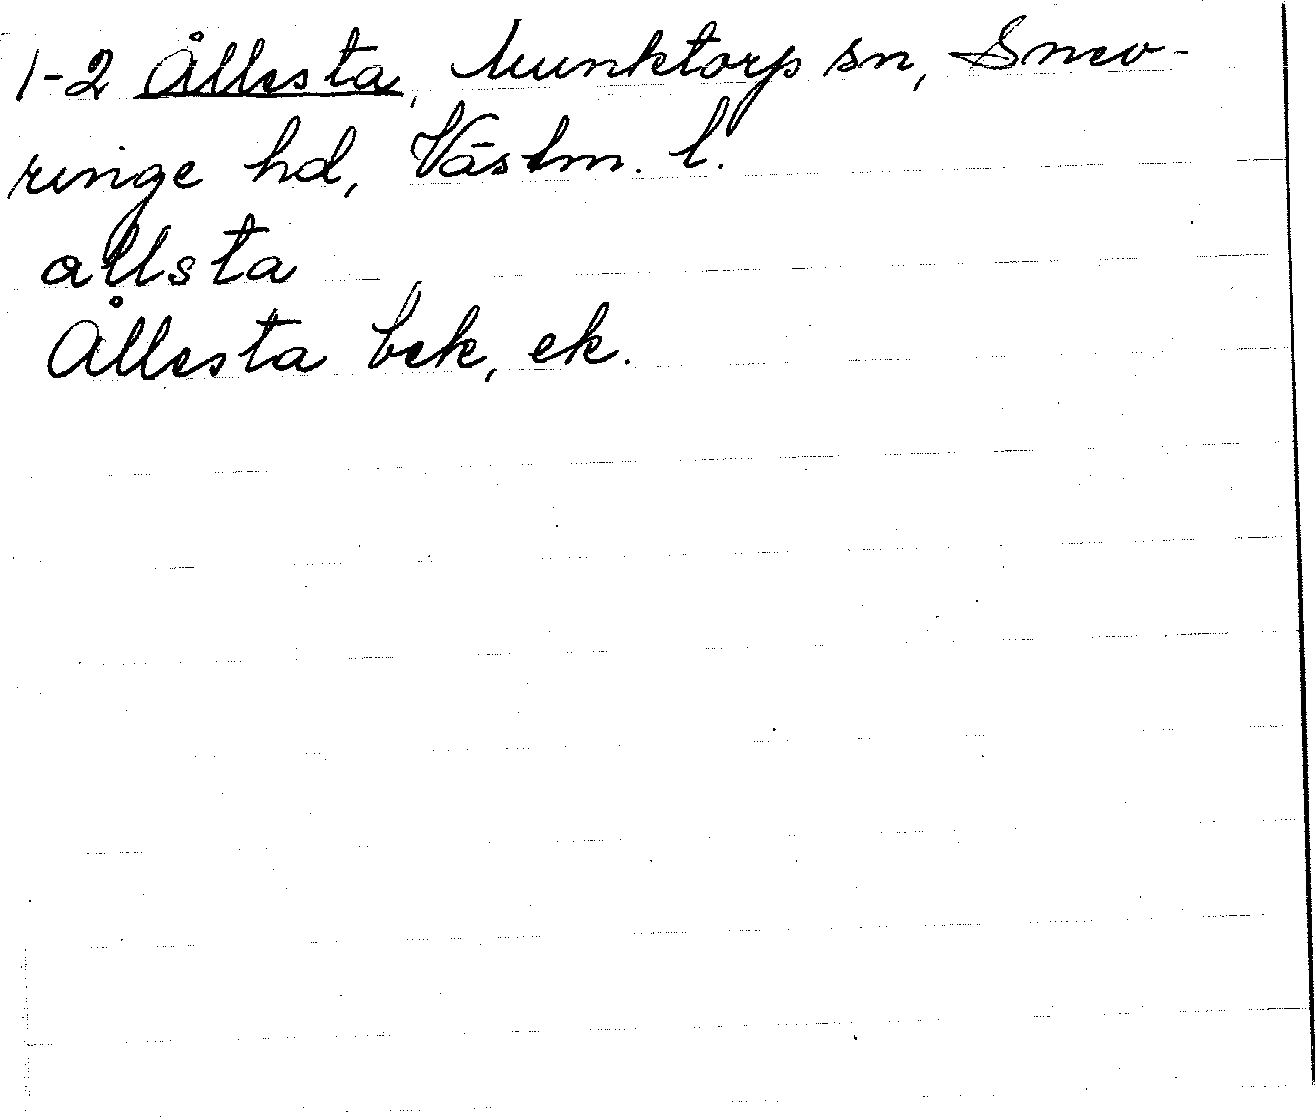 1-2 Ållesta, Munktorp sn, Snev-
ringe hd, Västm. l.
allsta
Ållesta bek, ek.